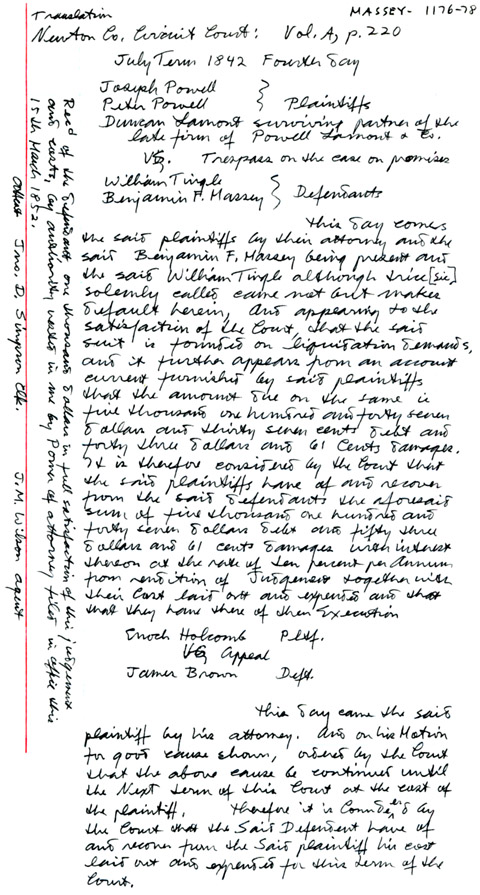 Translation
MASSEY - 1176-78
Newton Co. Circuit Court: Vol. A, p. 220
July Term 1842 Fourth Day
Joseph Powell
Peter Powell } Plaintiffs
Duncan Lamont surviving partner of the
late firm of Powell Lamont & Co.
VS. Trespass on the case on promises
William Tingle
Benjamin F. Massey } Defendants
This day comes
the said plaintiffs by their attorney and the
said Benjamin F. Massey being present and
the said William Tingle although trice [sic]
solemly called came not but makes
default herein, And appearing to the
satisfaction of the Court, that the said
suit is founded on liquidation demands,
and it further appears from an account
current furnished by said plaintiffs
that the amount due on the same is
five thousand one hundred and forty seven
dollars and thirty seven cents debt and
forty three dollars and 61 Cents damages.
It is therefore considered by the Court that
the said plaintiffs have of and recover
from the said defendants the aforesaid
sum of five thousand one hundred and
forty seven dollars debt and fifty three
dollars and 61 cents damages with interest
thereon at the rate of ten percent per Annum
from rendition of Judgement together with
their Cost laid out and expended and that
that they have there of their Execution
Enoch Holcomb Pltf.
VS Appeal
James Brown Deft.
This day came the said
plaintiff by his attorney. And on his Motion
for good cause shown, ordered by the Court
that the above cause be continued until
the Next term of this Court at the cost of
the plaintiff. Therefore it is Considered by
the Court that the Said Defendent have of
and recover from the Said plaintiff his cost
laid out and expended for this term of the
Court.
Rec'd of the defendant one thousand dollars in full satisfaction of this judgement
and costs, by authority vested in me by Power of attorney filed in office this
15th March 1852.
Attest Jno. D. Simpson Clk. J. M. Wilson agent